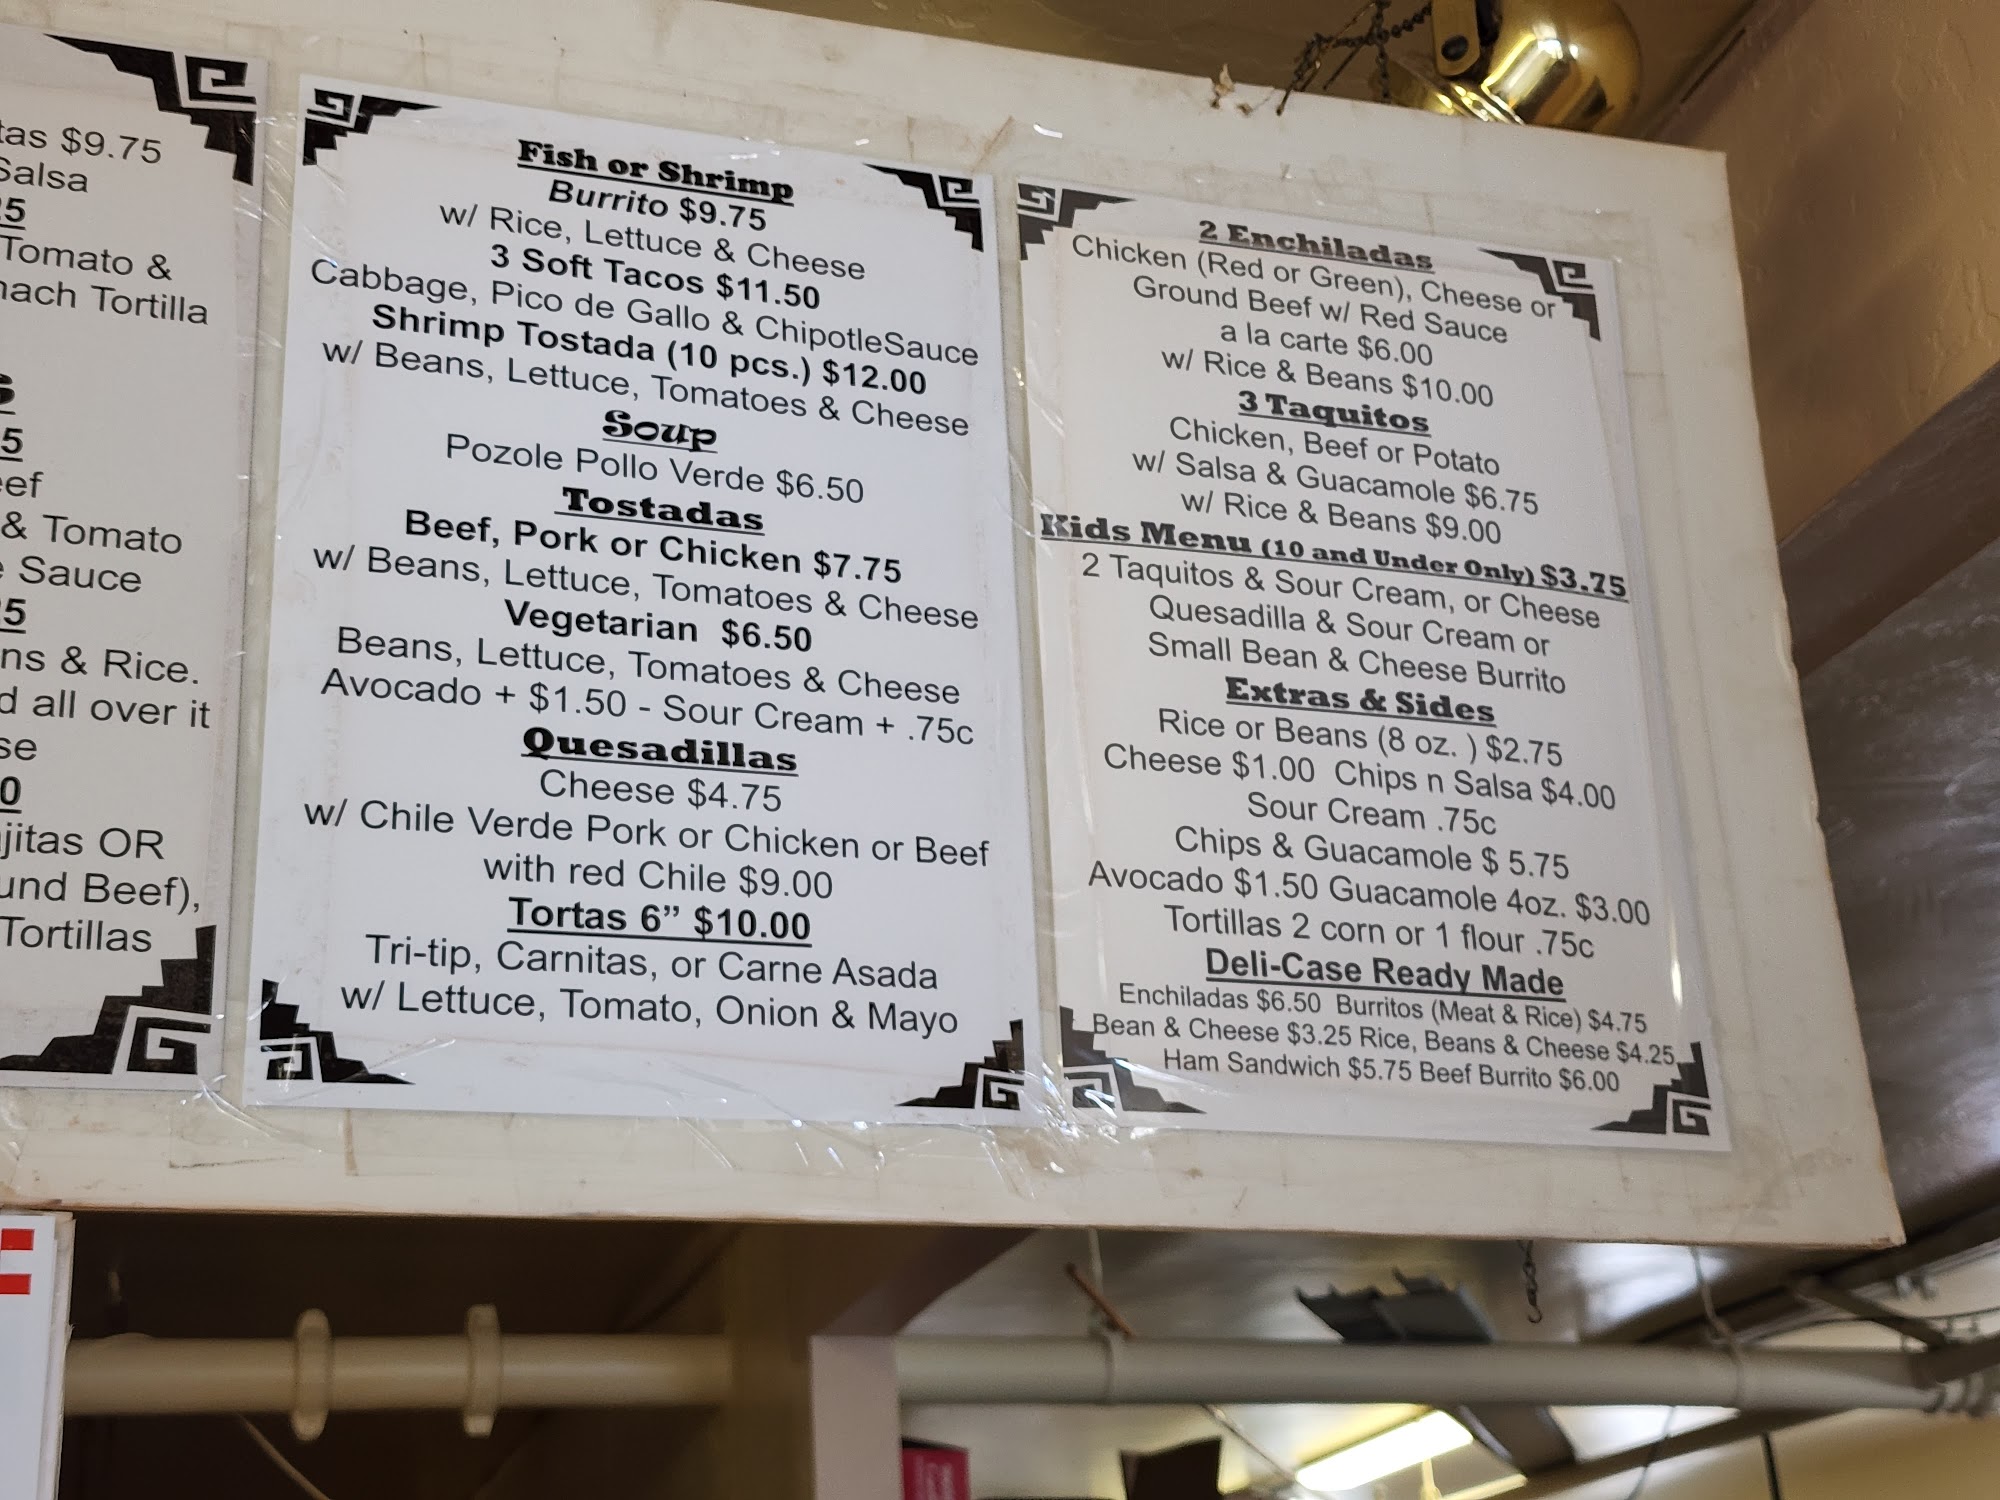 tas $9.75
Salsa
5
Tomato &
nach Tortilla
5
ef
& Tomato
Sauce
5
ns & Rice.
d all over it
se
0
jitas OR
und Beef),
Tortillas
Fish or Shrimp
Burrito $9.75
w/ Rice, Lettuce & Cheese
3 Soft Tacos $11.50
Cabbage, Pico de Gallo & ChipotleSauce
Shrimp Tostada (10 pcs.) $12.00
w/ Beans, Lettuce, Tomatoes & Cheese
Soup
Pozole Pollo Verde $6.50
Tostadas
Beef, Pork or Chicken $7.75
w/ Beans, Lettuce, Tomatoes & Cheese
Vegetarian $6.50
Beans, Lettuce, Tomatoes & Cheese
Avocado + $1.50 - Sour Cream + .75c
Quesadillas
Cheese $4.75
w/ Chile Verde Pork or Chicken or Beef
with red Chile $9.00
Tortas 6” $10.00
Tri-tip, Carnitas, or Carne Asada
w/ Lettuce, Tomato, Onion & Mayo
2 Enchiladas
Chicken (Red or Green), Cheese or
Ground Beef w/ Red Sauce
a la carte $6.00
w/ Rice & Beans $10.00
3 Taquitos
Chicken, Beef or Potato
w/ Salsa & Guacamole $6.75
w/ Rice & Beans $9.00
Kids Menu (10 and Under Only) $3.75
2 Taquitos & Sour Cream, or Cheese
Quesadilla & Sour Cream or
Small Bean & Cheese Burrito
Extras & Sides
Rice or Beans (8 oz. ) $2.75
Cheese $1.00 Chips n Salsa $4.00
Sour Cream .75c
Chips & Guacamole $ 5.75
Avocado $1.50 Guacamole 4oz. $3.00
Tortillas 2 corn or 1 flour .75c
Deli-Case Ready Made
Enchiladas $6.50 Burritos (Meat & Rice) $4.75
Bean & Cheese $3.25 Rice, Beans & Cheese $4.25
Ham Sandwich $5.75 Beef Burrito $6.00